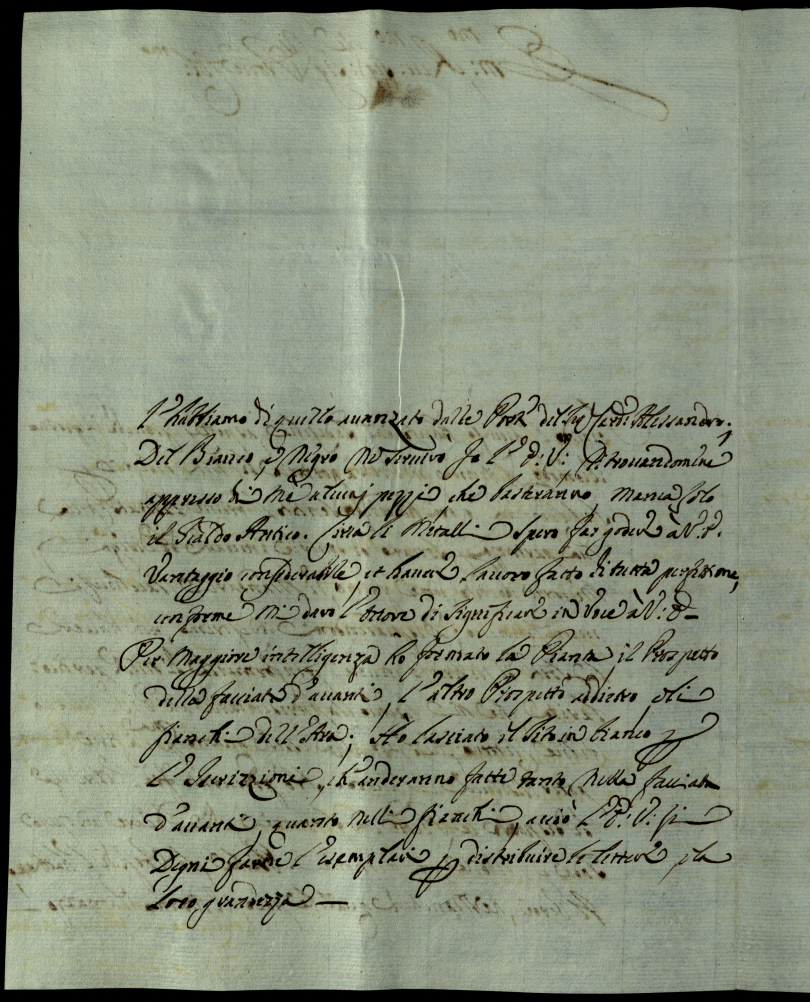 l'habbiamo di quello avanzato dalle Port.e del Sig. Card. Alessandro.
Del Bianco, e Negro ne servirò Io l'E: V: ritrovandomene
appresso di me alcuni pezzi che basteranno, manca solo
il Gialdo Antico. Circa li Metalli spero far godere à V: E.
Vantaggio considerabile, et haverà lavoro fatto di tutta perfezzione,
conforme mi darò l'onore di significare in voce à V: E
Per maggiore intelligenza hò formato la Pianta, il Prospetto
della facciata d'avanti, l'altro Prospetto addietro, e li
fianchi dell'Ara; Hò lasciato il sito in bianco p
l'Iscrizzioni, ch'anderanno fatte tanto nella facciata
d'avanti, quanto nelli fianchi, acciò l'E: V: si
Degni farne l'esemplari p distribuire le lettere, e la
loro grandezza